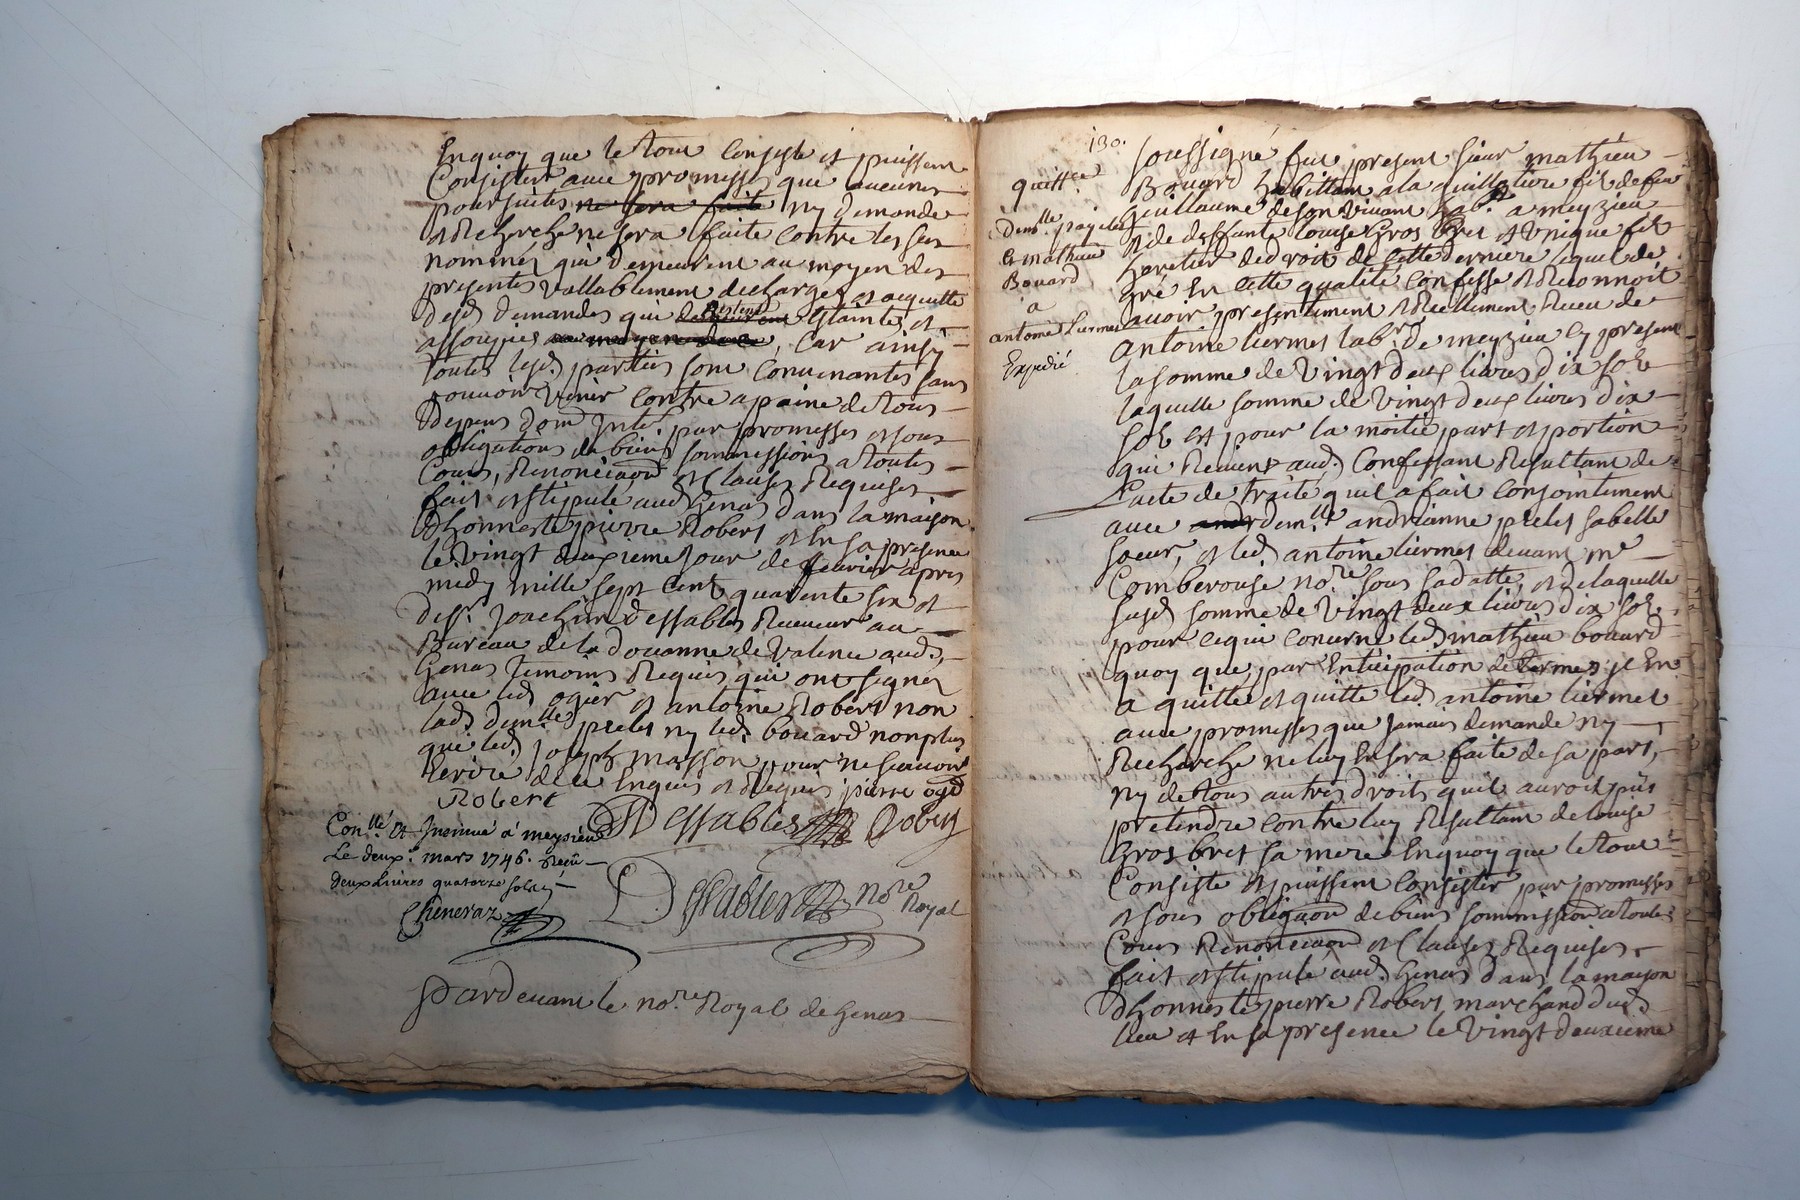 Enquoy que le tout consiste et puissent
Consister avec promesses que aucunes
poursuites ne sera faite ny demande
et Recherche ne sera faite contre les sus
nommés qui demeurent au moyen des
presentes vallablement dechargés et acquitté
desd demandes qui restent Estaintes et
assoupies au moyen de ce, Car ainsy
toutes lesd. parties sont Convenantes sans
pouvoir venir contre a paine de tous
depens dom Inte. par promesses et sous
obligations de biens sommissions a toutes
Cours, Renonciaons et Clauses Requises
fait et stipulé aud Genas dans la maison
d'honneste pierre Robert et En sa presence
le vingt deuxieme Jour de fevrier apres
midy mille sept cent quarente six et
de sr. Joachim Dessables Receveur au
Bureau de la Douanne de Valence aud.
Genas temoins Requis qui ont signez
avec led ogier et antoine Robert non
lad. demlle prelet ny led. bouard non plus
que led. Joseph masson pour ne scavoir
Ecrire de ce Enquis et Requis pierre ogié
Robert
Dessables Robert
Conllé et Insinué á meysieu
Le deuxe. mars 1746. Reçû
deux Livres quatorze sols
Cheneraz
Dessables nore Royal
Pardevant le nore Royal de Genas
130.
quittce
demlle prelet
Et mathieu
Bouard
a
antoine Liermet
Expedié
soussigné fut present sieur mathieu
Bouard habittant a la guillotiere fils de feu
Guillaume de son vivant habt. a meyzieu
et de deffunte Louise Gros bret et unique fils
heretier de droit de cette derniere lequel de
gré En cette qualité confesse et Reconnoit
avoir presentement et Reellement Receu de
antoine Liermet labr. de meyzieu Cy present
la somme de vingt deux livres dix sols
laquelle somme de vingt deux livres dix
sols est pour la moitié part et portion
qui Revient aud. Confessant Resultant de
l'acte de traité quil a fait conjointement
avec demlle andrianne prelet sa belle
soeur, et led antoine Liermet devant me
Comberouse nore sous sa datte, et de laquelle
susd somme de vingt deux livres dix sols,
pour ce qui concerne led mathieu bouard
quoy que par Enticipation de termes il En
a quitté et quitte led. antoine Liermet
avec promesses que Jamais demande ny
Recherche ne luy En sera faite de sa part,
ny de tous autres droits quil auroit pûs
pretendre contre luy Resultant de Louise
Gros bret sa mere Enquoy que le tout
Consiste et puissent Consister par promesses
et sous obligaon de biens sommission a toutes
Cours Renonciaon et Clauses Requises
fait et stipulé aud. Genas dans la maison
d'honneste pierre Robert marchand dud.
lieu et En sa presence le vingt deuxieme